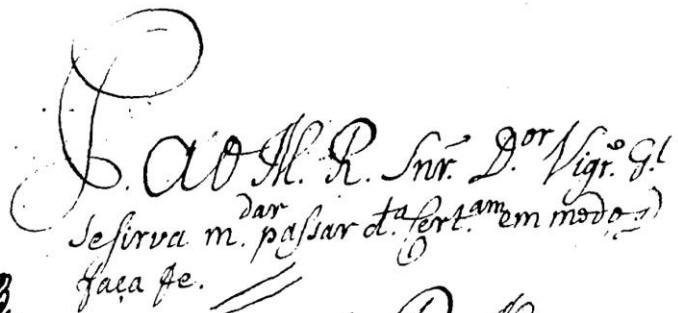 P. ao M. R. Snr. D.or Vigr.o G.l
se sirva m.dar passar d.ta Cert.am em modo q
faça fe.